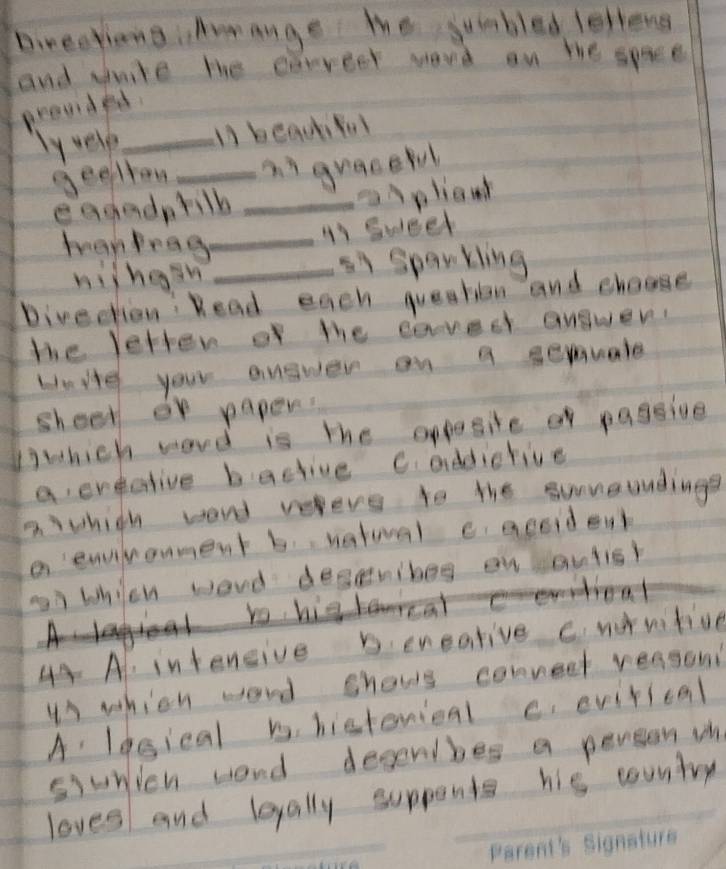 Directions: Arrange the jumbled letters
and write the correct word on the space
provided.
lyvele _____ 1) beautiful
geelton _____ 2) graceful
eagadptilb _____ 3) pliant
tranfrag _____ 4) sweet
nijhgsn _____ 5) sparkling
Direction: Read each question and choose
the letter of the correct answer.
Write your answer on a sepuvate
sheet of paper.
1) which word is the opposite of passive
a. creative b. active c. addictive
2) which word refers to the surroundings
a environment b. natural c. accident
3) which word describes an artist
A. logical b. historical c critical
4) A. intensive b. creative c. nutritive
4) which word shows correct reasoni
A. logical b. historical c. critical
5) which word describes a person wh
loves and loyally supports his country
Parent's Signature